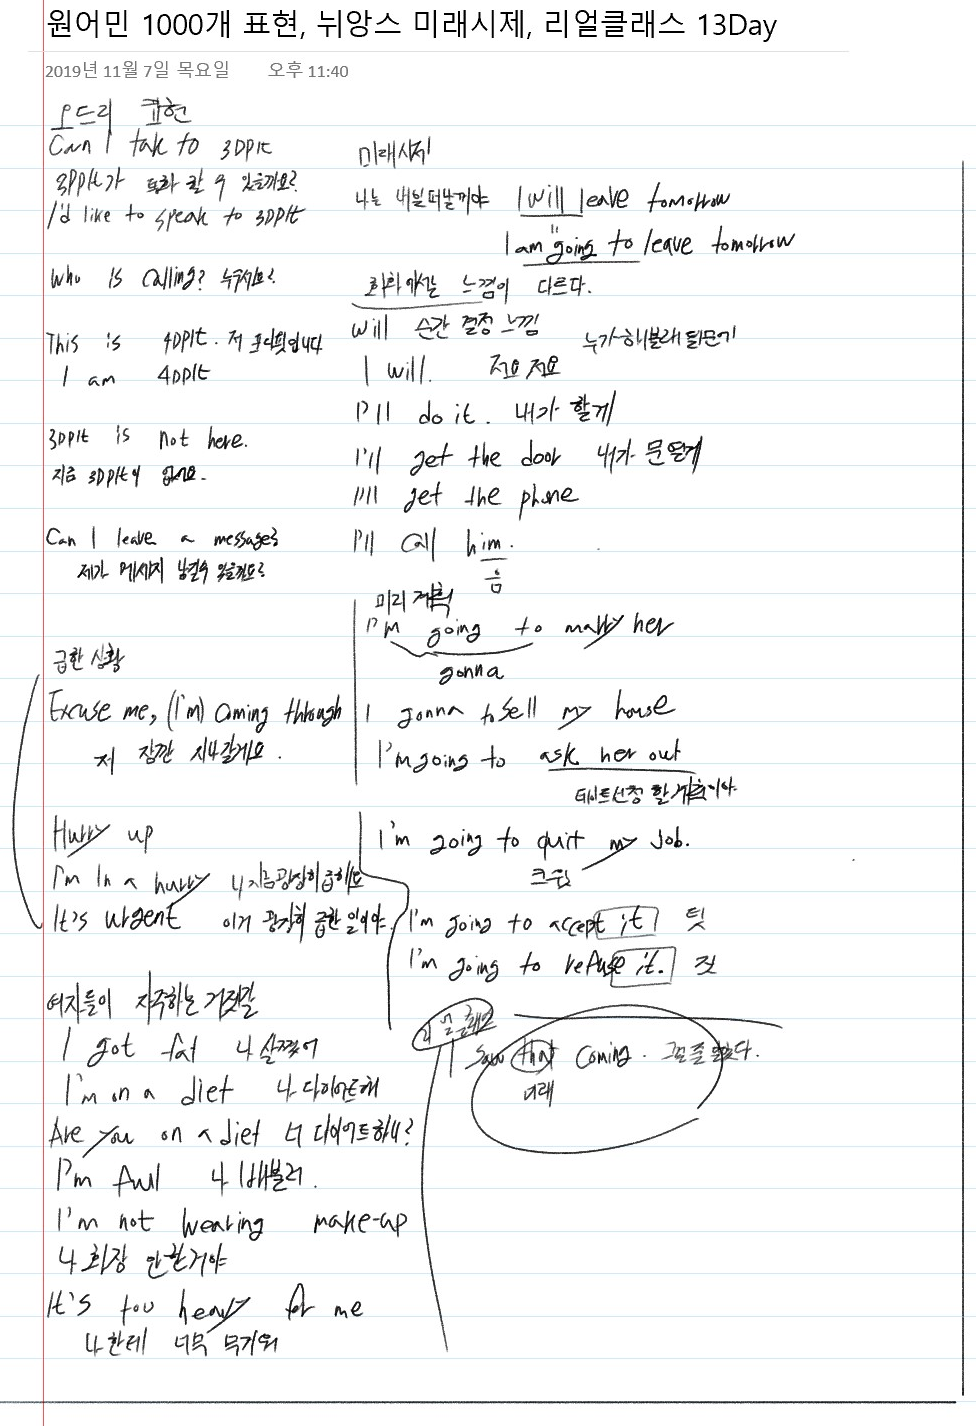 원어민 1000개 표현, 뉘앙스 미래시제, 리얼클래스 13Day
2019년 11월 7일 목요일 오후 11:40
오드리 표현
Can I talk to 3DPIt
3DPIt가 통화 할 수 있을까요?
I'd like to speak to 3DPIt
Who is calling? 누구시요?
This is 4DPIt. 저 포디핏입니다
I am 4DPIt
3DPIt is not here.
지금 3DPIt이 없어요.
Can I leave a message?
제가 메세지 남길수 있을까요?
급한 상황
Excuse me, (I'm) coming through
저 잠깐 지나갈게요.
Hurry up
I'm in a hurry 나 지금 굉장히 급해요
It's urgent 이거 굉장히 급한 일이야.
여자들이 자주하는 거짓말
I got fat 나 살쪘어
I'm on a diet 나 다이어트해
Are you on a diet 너 다이어트하니?
I'm full 나 배불러.
I'm not wearing make-up
나 화장 안한거야
It's too heavy for me
나한테 너무 무거워
미래시제
나는 내일 떠날꺼야 I will leave tomorrow
I am going to leave tomorrow
회화에서는 느낌이 다르다.
will 순간 결정 느낌
누가 해볼래 질문에
I will. 저요 저요
I'll do it. 내가 할게
I'll get the door 내가 문열게
I'll get the phone
I'll call him.
음
미리 계획
I'm going to marry her
gonna
I gonna to sell my house
I'm going to ask her out
데이트신청 할 계획이야.
I'm going to quit my job.
크윗
I'm going to accept it 팃
I'm going to refuse it. 짓
리얼클래스
I saw that coming. 그럴줄 알았다.
미래